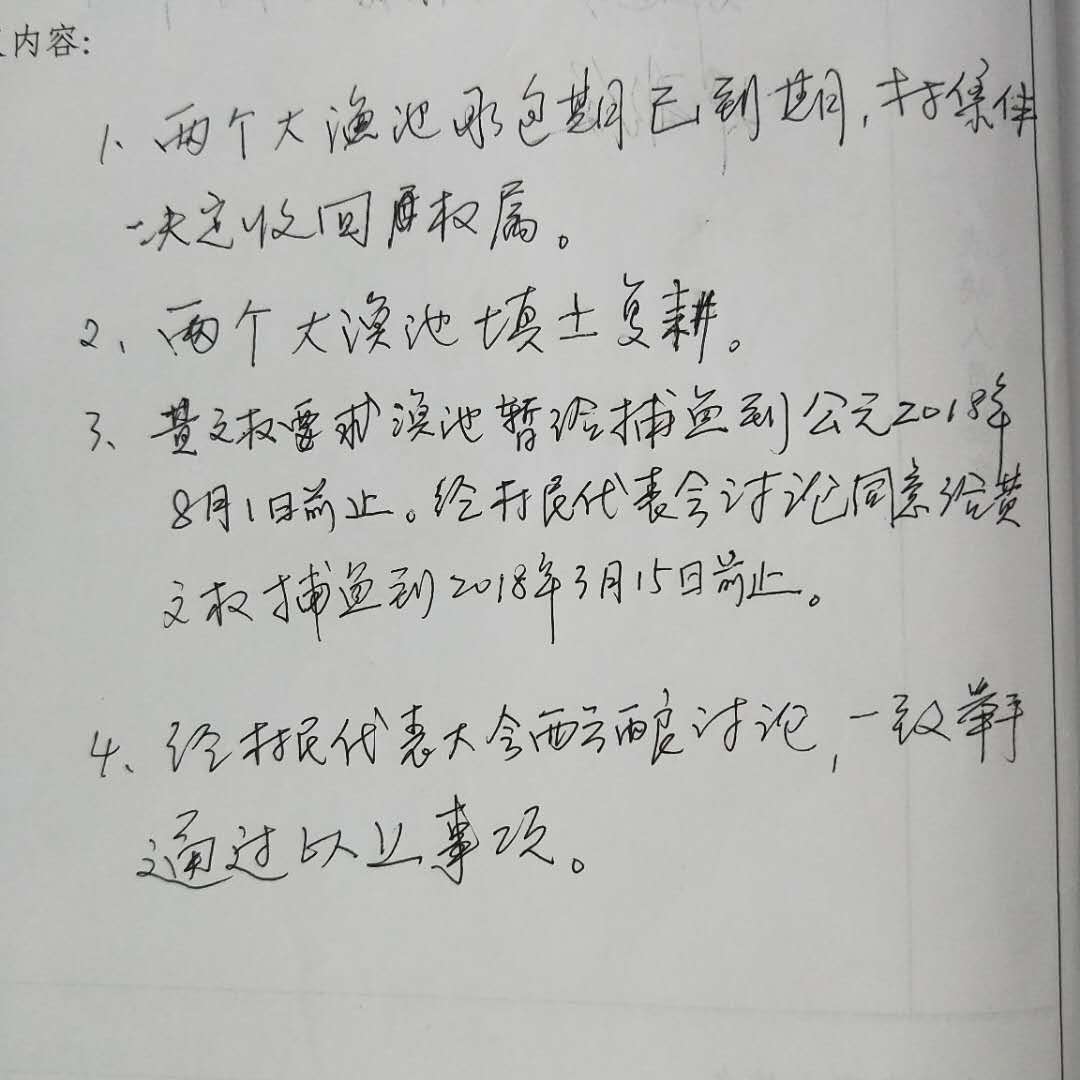 内容：
1、两个大渔池承包期已到期，村集体
决定收回权属。
2、两个大渔池填土复耕。
3、黄文权要求渔池暂给捕鱼到公元2018年
8月1日前止。经村民代表会讨论同意给黄
文权捕鱼到2018年3月15日前止。
4、经村民代表大会讨论，一致举手
通过以上事项。